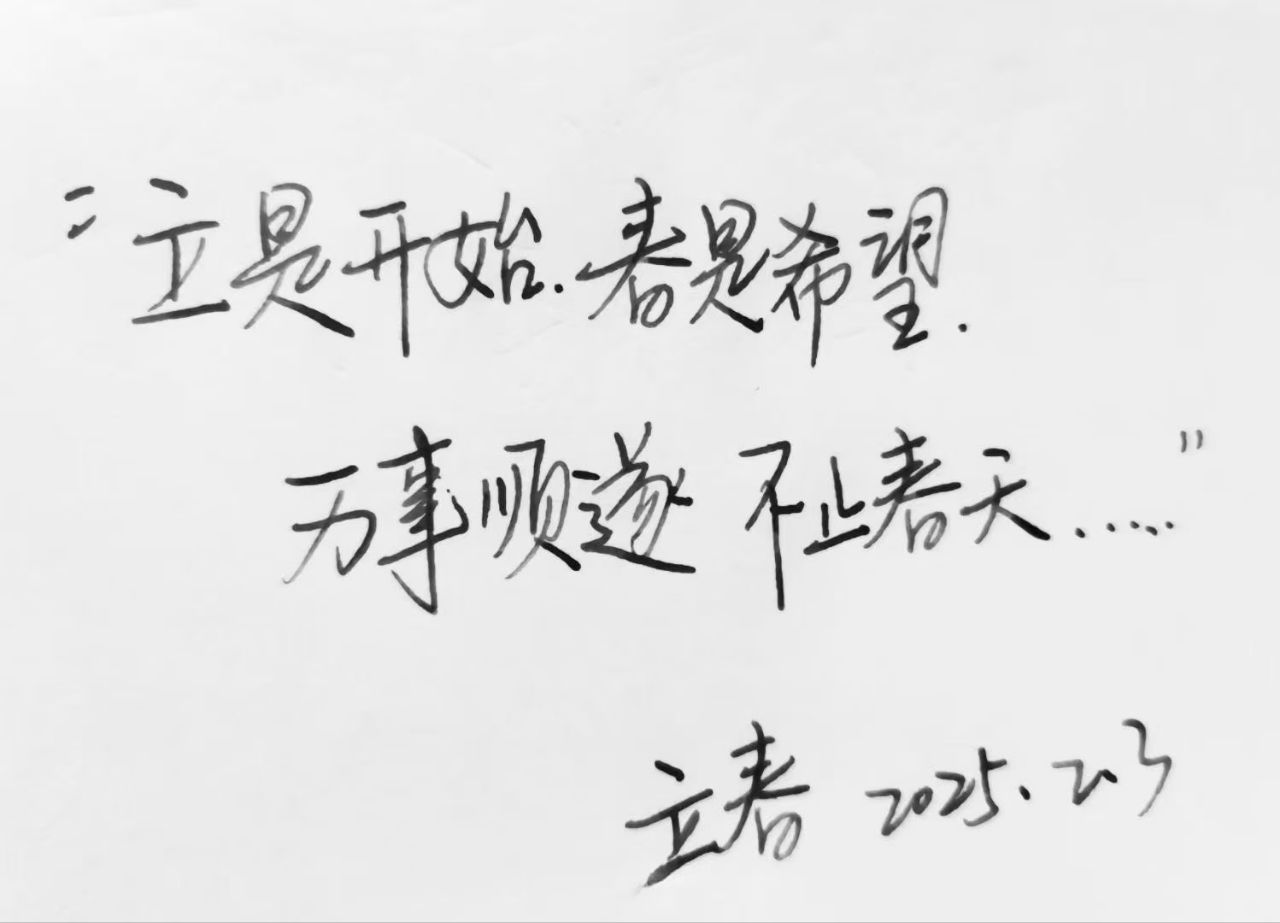 "立是开始.春是希望.
万事顺遂 不止春天......"
立春 2025.2.3